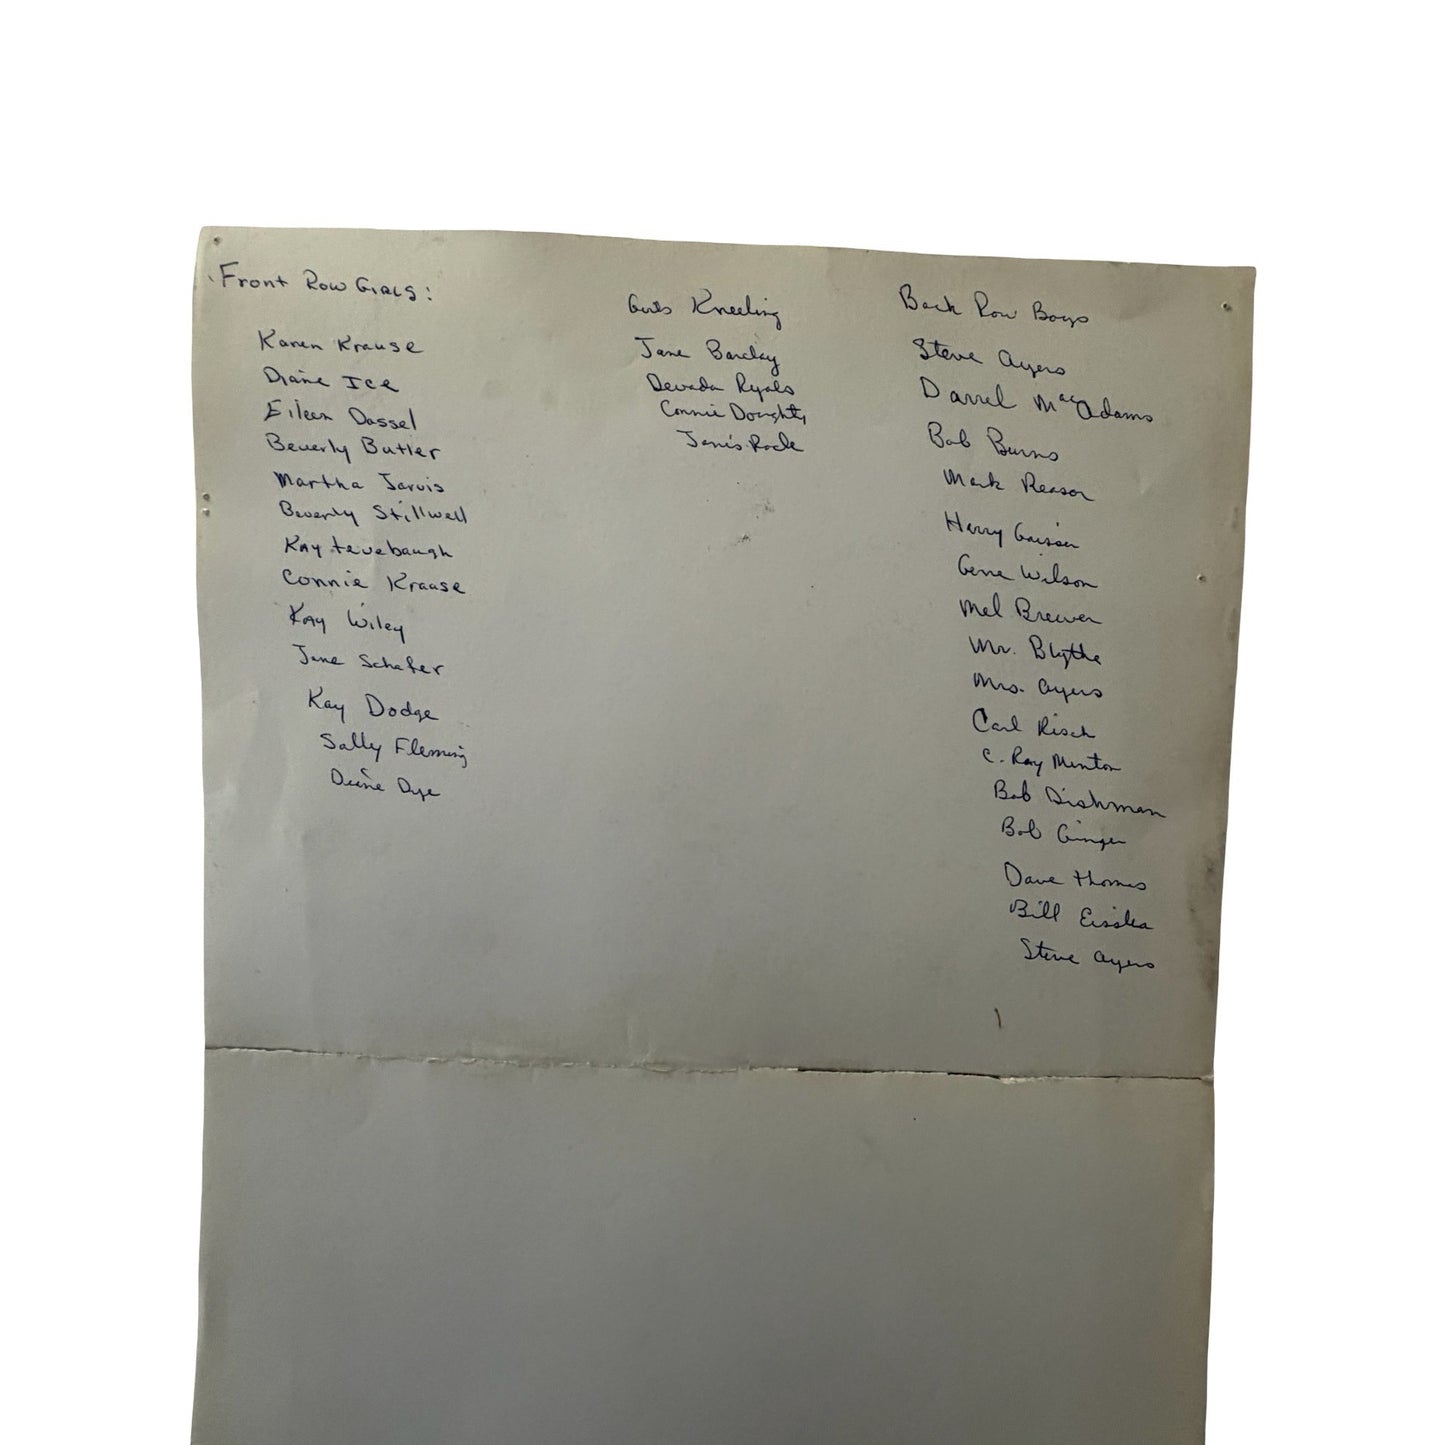 Front Row Girls:
Karen Krause
Diane Ice
Eileen Dassel
Beverly Butler
Martha Jarvis
Beverly Stillwell
Kay
Connie Krause
Kay Wiley
Jane Schafer
Kay Dodge
Sally Fleming
Diane Dye
Girls Kneeling
Jane Barclay
Devada Ryals
Connie Doughty
Janis Rock
Back Row Boys
Steve Ayers
Darrel MacAdams
Bob Burns
Mark Reason
Harry
Gene Wilson
Mel Brewer
Mr. Blythe
Mrs. Ayers
Carl Risch
C. Ray Minton
Bob Dishman
Bob Ginger
Dave Thomas
Bill
Steve Ayers